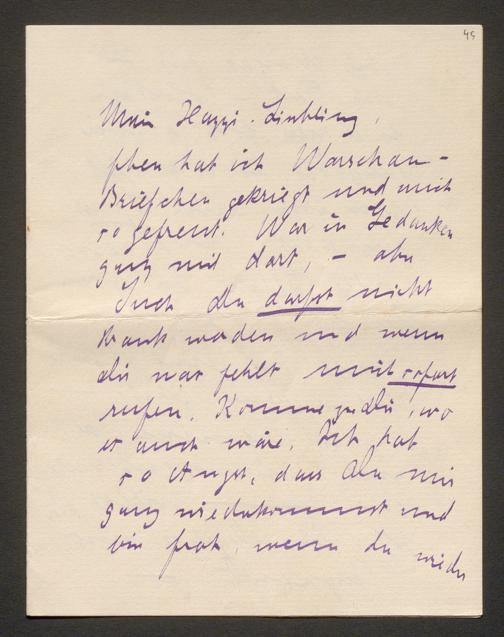 45
Mein Hazzi-Liebling,
eben hab ich Warschau-
Briefchen gekriegt und mich
so gefreut. War in Gedanken
ganz mit dort, – aber
Du darfst nicht
krank werden und wenn
dir was fehlt mich sofort
rufen. Komme zu dir, wo
es auch wäre. Ich hab
so Angst, dass du mir
ganz wiederkommst und
bin froh, wenn du wieder